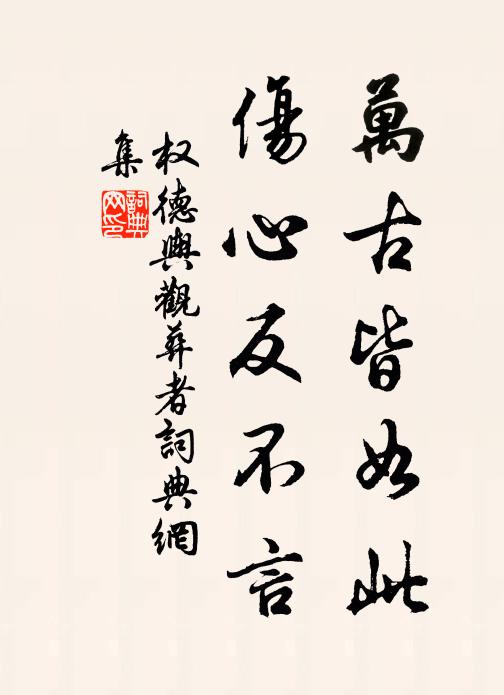 萬古皆如此
傷心反不言
权德輿觀葬者詞典網
集
詞典
网印